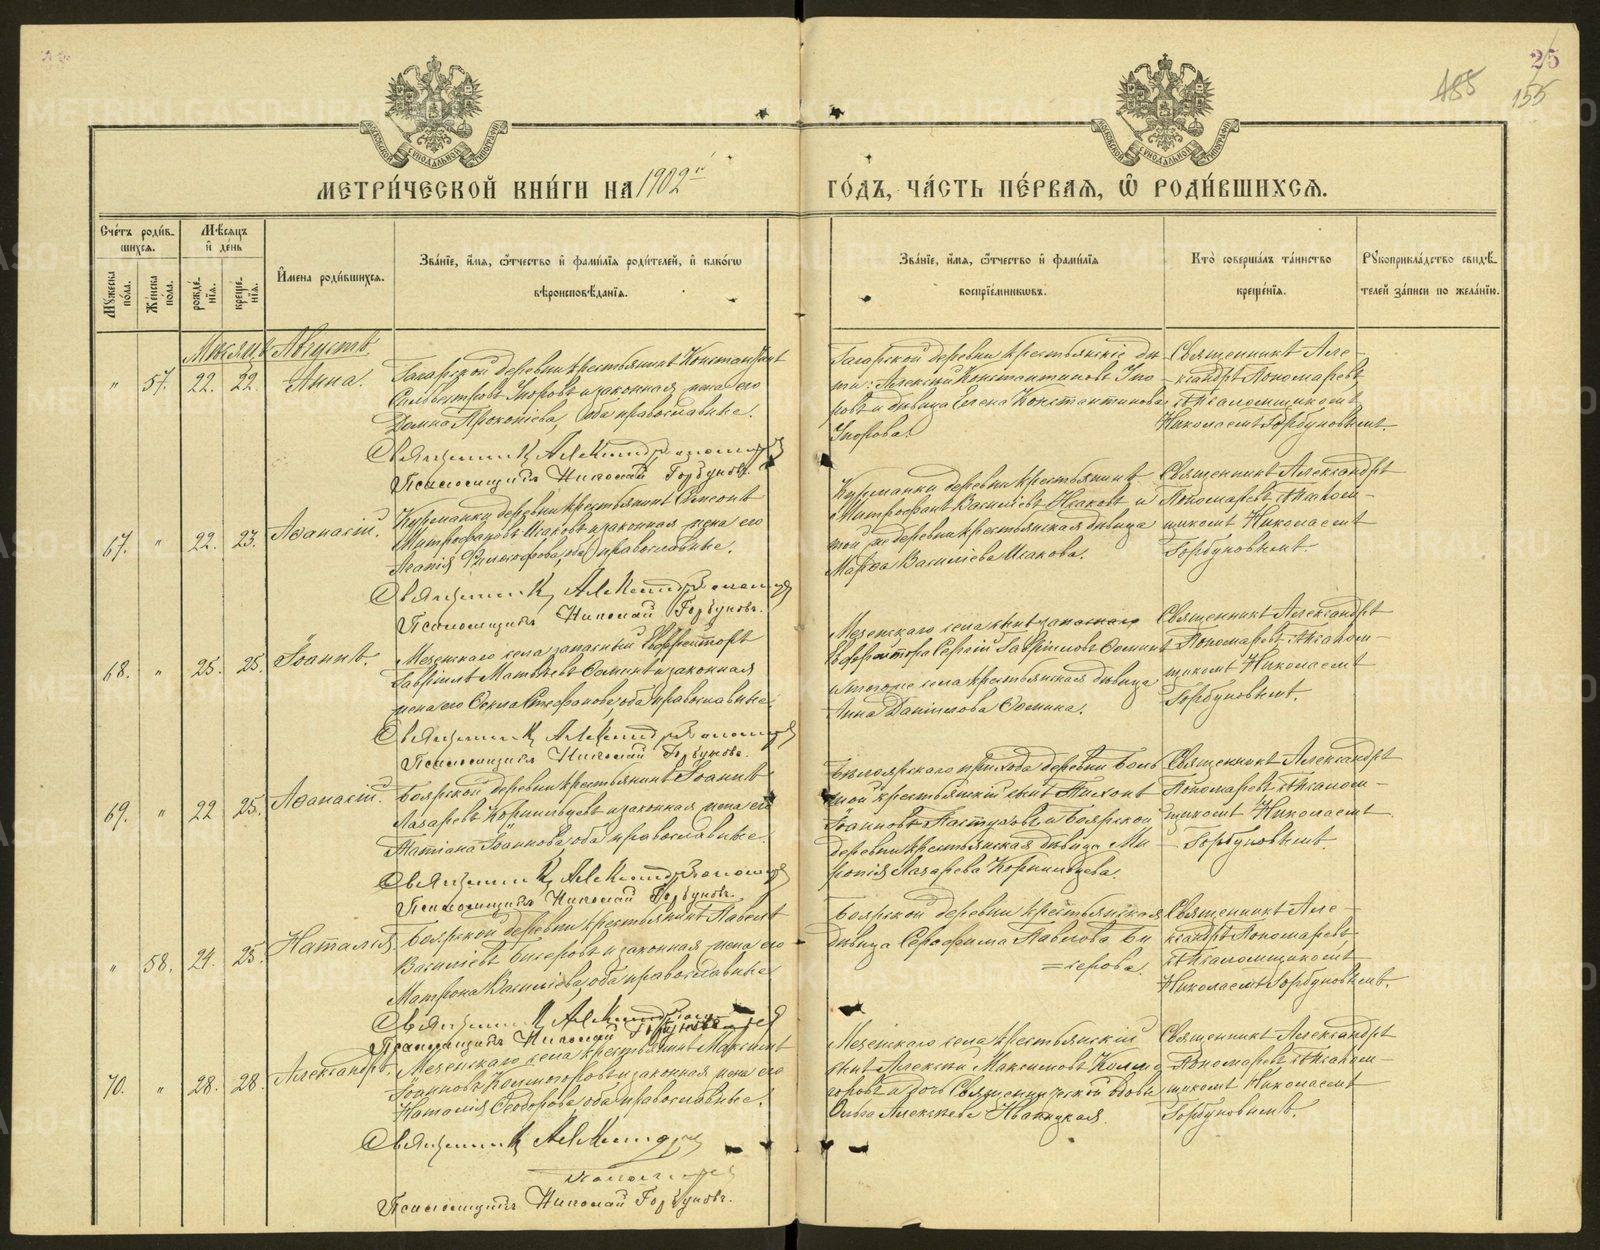 25
155
155
МОСКОВСКОЙ СѴНОДАЛЬНОЙ ТИПОГРАФІИ
МОСКОВСКОЙ СѴНОДАЛЬНОЙ ТИПОГРАФІИ
МЕТРИ́ЧЕСКОЙ КНИ́ГИ НА 1902й ГО́ДЪ, ЧА́СТЬ ПЕ́РВАѦ, Ѽ РОДИ́ВШИХСѦ.
Сче́тъ роди́вшихсѧ.
Мꙋжеска по́ла.
Же́нска по́ла.
Мѣ́сѧцъ и҆ де́нь
рожде́нїѧ.
креще́нїѧ.
И҆мена роди́вшихсѧ.
Зва́нїе, и҆́мѧ, ѻ҆́тчество и҆ фами́лїѧ роди́телей, и҆ како́гѡ
вѣроисповѣ́данїѧ.
Зва́нїе, и҆́мѧ, ѻ҆́тчество и҆ фами́лїѧ
воспрїе́мникѡвъ.
Кто̀ соверша́лъ та́инство
креще́нїѧ.
Рꙋкоприкла́дство свидѣ́-
телей за́писи по жела́нїю.
Мѣсяцъ Августъ
" 57. 22. 22. Анна.
Гагарской деревни крестьянинъ Константинъ
Сильвестровъ Упоровъ и законная жена его
Домна Прокопіева, оба православные.
Священникъ Александръ Пономаревъ
Псаломщикъ Николай Горбуновъ.
Гагарской деревни крестьянскіе дѣ-
ти: Алексѣй Константиновъ Упо-
ровъ и дѣвица Елена Константинова
Упорова.
Священникъ Але-
ксандръ Пономаревъ
съ Псаломщикомъ
Николаемъ Горбуновымъ.
67. " 22. 23. Аѳанасій.
Курманки деревни крестьянинъ Симеонъ
Митрофановъ Исаковъ и законная жена его
Агапія, оба православные.
Священникъ Александръ Пономаревъ
Псаломщикъ Николай Горбуновъ.
Курманки деревни крестьянинъ
Митрофанъ Василіевъ Исаковъ и
той же деревни крестьянская дѣвица
Марѳа Василіева Исакова.
Священникъ Александръ
Пономаревъ съ Псалом-
щикомъ Николаемъ
Горбуновымъ.
68. " 25. 25. Іоаннъ.
Мезенскаго села запасный Ефрейторъ
Гавріилъ Матѳѣевъ Ѳоминъ и законная
жена его Ѳекла Стефанова, оба православные.
Священникъ Александръ Пономаревъ
Псаломщикъ Николай Горбуновъ.
Мезенскаго села сынъ запаснаго
Ефрейтора Сергій Гавріиловъ Ѳоминъ
и тогоже села крестьянская дѣвица
Анна Даніилова Ѳомина.
Священникъ Александръ
Пономаревъ съ Псалом-
щикомъ Николаемъ
Горбуновымъ.
69. " 22 25. Аѳанасій.
Боярской деревни крестьянинъ Іоаннъ
Лазаревъ Корнильцевъ и законная жена его
Татіана Іоаннова, оба православные.
Священникъ Александръ Пономаревъ
Псаломщикъ Николай Горбуновъ.
Бѣлоярскаго прихода деревни
крестьянскій сынъ Тихонъ
Іоанновъ Пастуховъ и Боярской
деревни крестьянская дѣвица Ми-
ропія Лазарева Корнильцева.
Священникъ Александръ
Пономаревъ съ Псалом-
щикомъ Николаемъ
Горбуновымъ.
" 58. 24. 25. Наталія.
Боярской деревни крестьянинъ Павелъ
Василіевъ Бисеровъ и законная жена его
Матрона Василіева, оба православные
Священникъ Александръ Пономаревъ
Псаломщикъ Николай Горбуновъ
Боярской деревни крестьянская
дѣвица Серафима Павлова Би-
=серова.
Священникъ Але-
ксандръ Пономаревъ
съ Псаломщикомъ
Николаемъ Горбуновымъ.
70. " 28. 28. Александръ.
Мезенскаго села крестьянинъ Максимъ
Іоанновъ Колмогоровъ и законная жена его
Наталія Ѳеодорова, оба православные.
Священникъ Александръ
Пономаревъ
Псаломщикъ Николай Горбуновъ.
Мезенскаго села крестьянскій
сынъ Алексѣй Максимовъ Колмо-
горовъ и дочь Священнической вдовы
Ольга Алексѣева
Священникъ Александръ
Пономаревъ съ Псалом-
щикомъ Николаемъ
Горбуновымъ.
METRIKI.GASO-URAL.RU